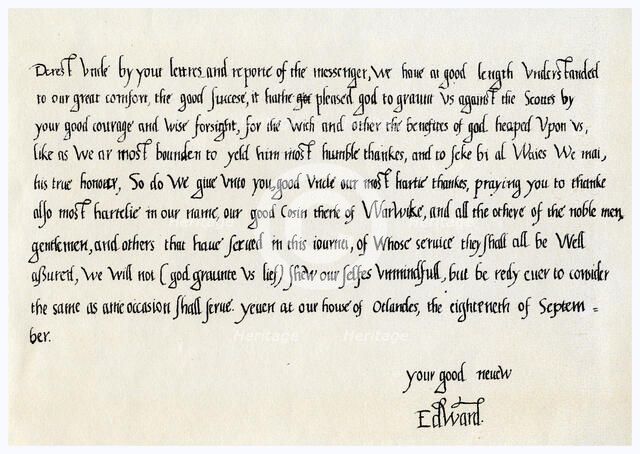 Derest Uncle by your lettres and reporte of the messenger, We have at good length Understanded
to our great comfort, the good succese, it hathe pleased god to graunt Us against the Scottes by
your good courage and wise forsight, for the wich and other the benefites of god heaped Upon us,
like as We ar most bounden to yeld him most humble thankes, and to seke bi al Waies We mai,
his true honour, So do We give Unto you, good Uncle our most hartie thankes, praying you to thanke
also most hartelie in our name, our good Cosin therle of Warwike, and all the othere of the noble men,
gentlemen, and others that have served in this iournei, of Whose service they shall all be Well
assured, We will not (god graunte Us lief) shew our selfes Unmindfull, but be redy ever to consider
the same as anie occasion shall serve. yeven at our house of Otlandes, the eighteneth of Septem=
ber.
your good neuew
Edward.
Heritage Heritage
Heritage Heritage